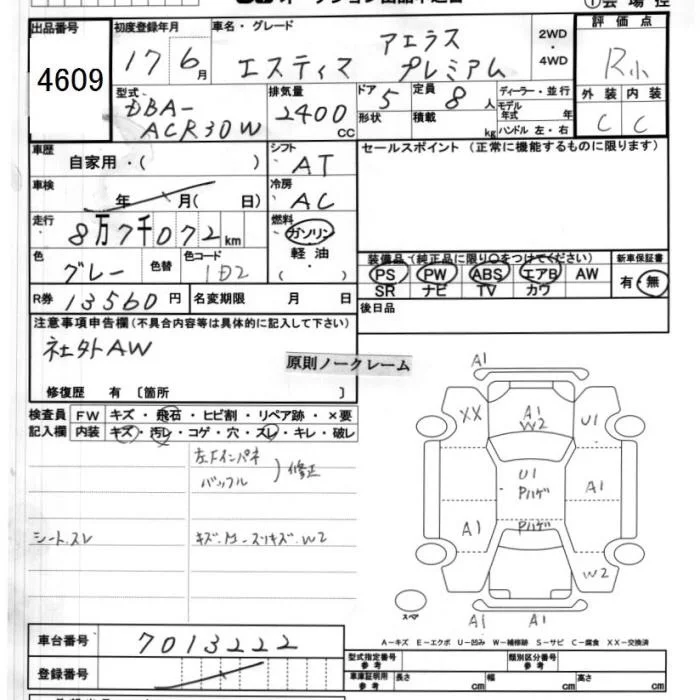 出品番号 初度登録年月 車名・グレード 2WD・4WD 評価点
4609 17 6月 エスティマ アエラス プレミアム R小
型式 DBA-ACR30W 排気量 2400cc ドア 5 定員 8人 ディーラー・並行 外装 内装
形状 積載 kg モデル年式 年 ハンドル 左・右 C C
車歴 自家用・( ) シフト AT セールスポイント (正常に機能するものに限ります)
車検 年 月( 日) 冷房 AC
走行 8万7千072km 燃料 ガソリン 軽油・( )
色 グレー 色替 色コード 1D2 装備品(純正品に限り○をつけてください) 新車保証書
PS PW ABS エアB AW 有・無
SR ナビ TV カワ
R券 13560円 名変期限 月 日 後日品
注意事項申告欄(不具合内容等は具体的に記入して下さい)
社外AW
原則ノークレーム
修復歴 有 〔箇所 〕
検査員 FW キズ・飛石・ヒビ割・リペア跡・×要
記入欄 内装 キズ・汚レ・コゲ・穴・スレ・キレ・破レ
左下インパネ
バッフル )修正
シート.スレ
W2
A1
XX A1 W2 U1
U1 Pハゲ
A1
A1 Pハゲ
W2
スペア A1 A1
A-キズ E-エクボ U-凹み W-補修跡 S-サビ C-腐食 XX-交換済
車台番号 7013222
型式指定番号 参考 類別区分番号 参考
登録番号 車庫証明用 参考 長さ cm 幅 cm 高さ cm